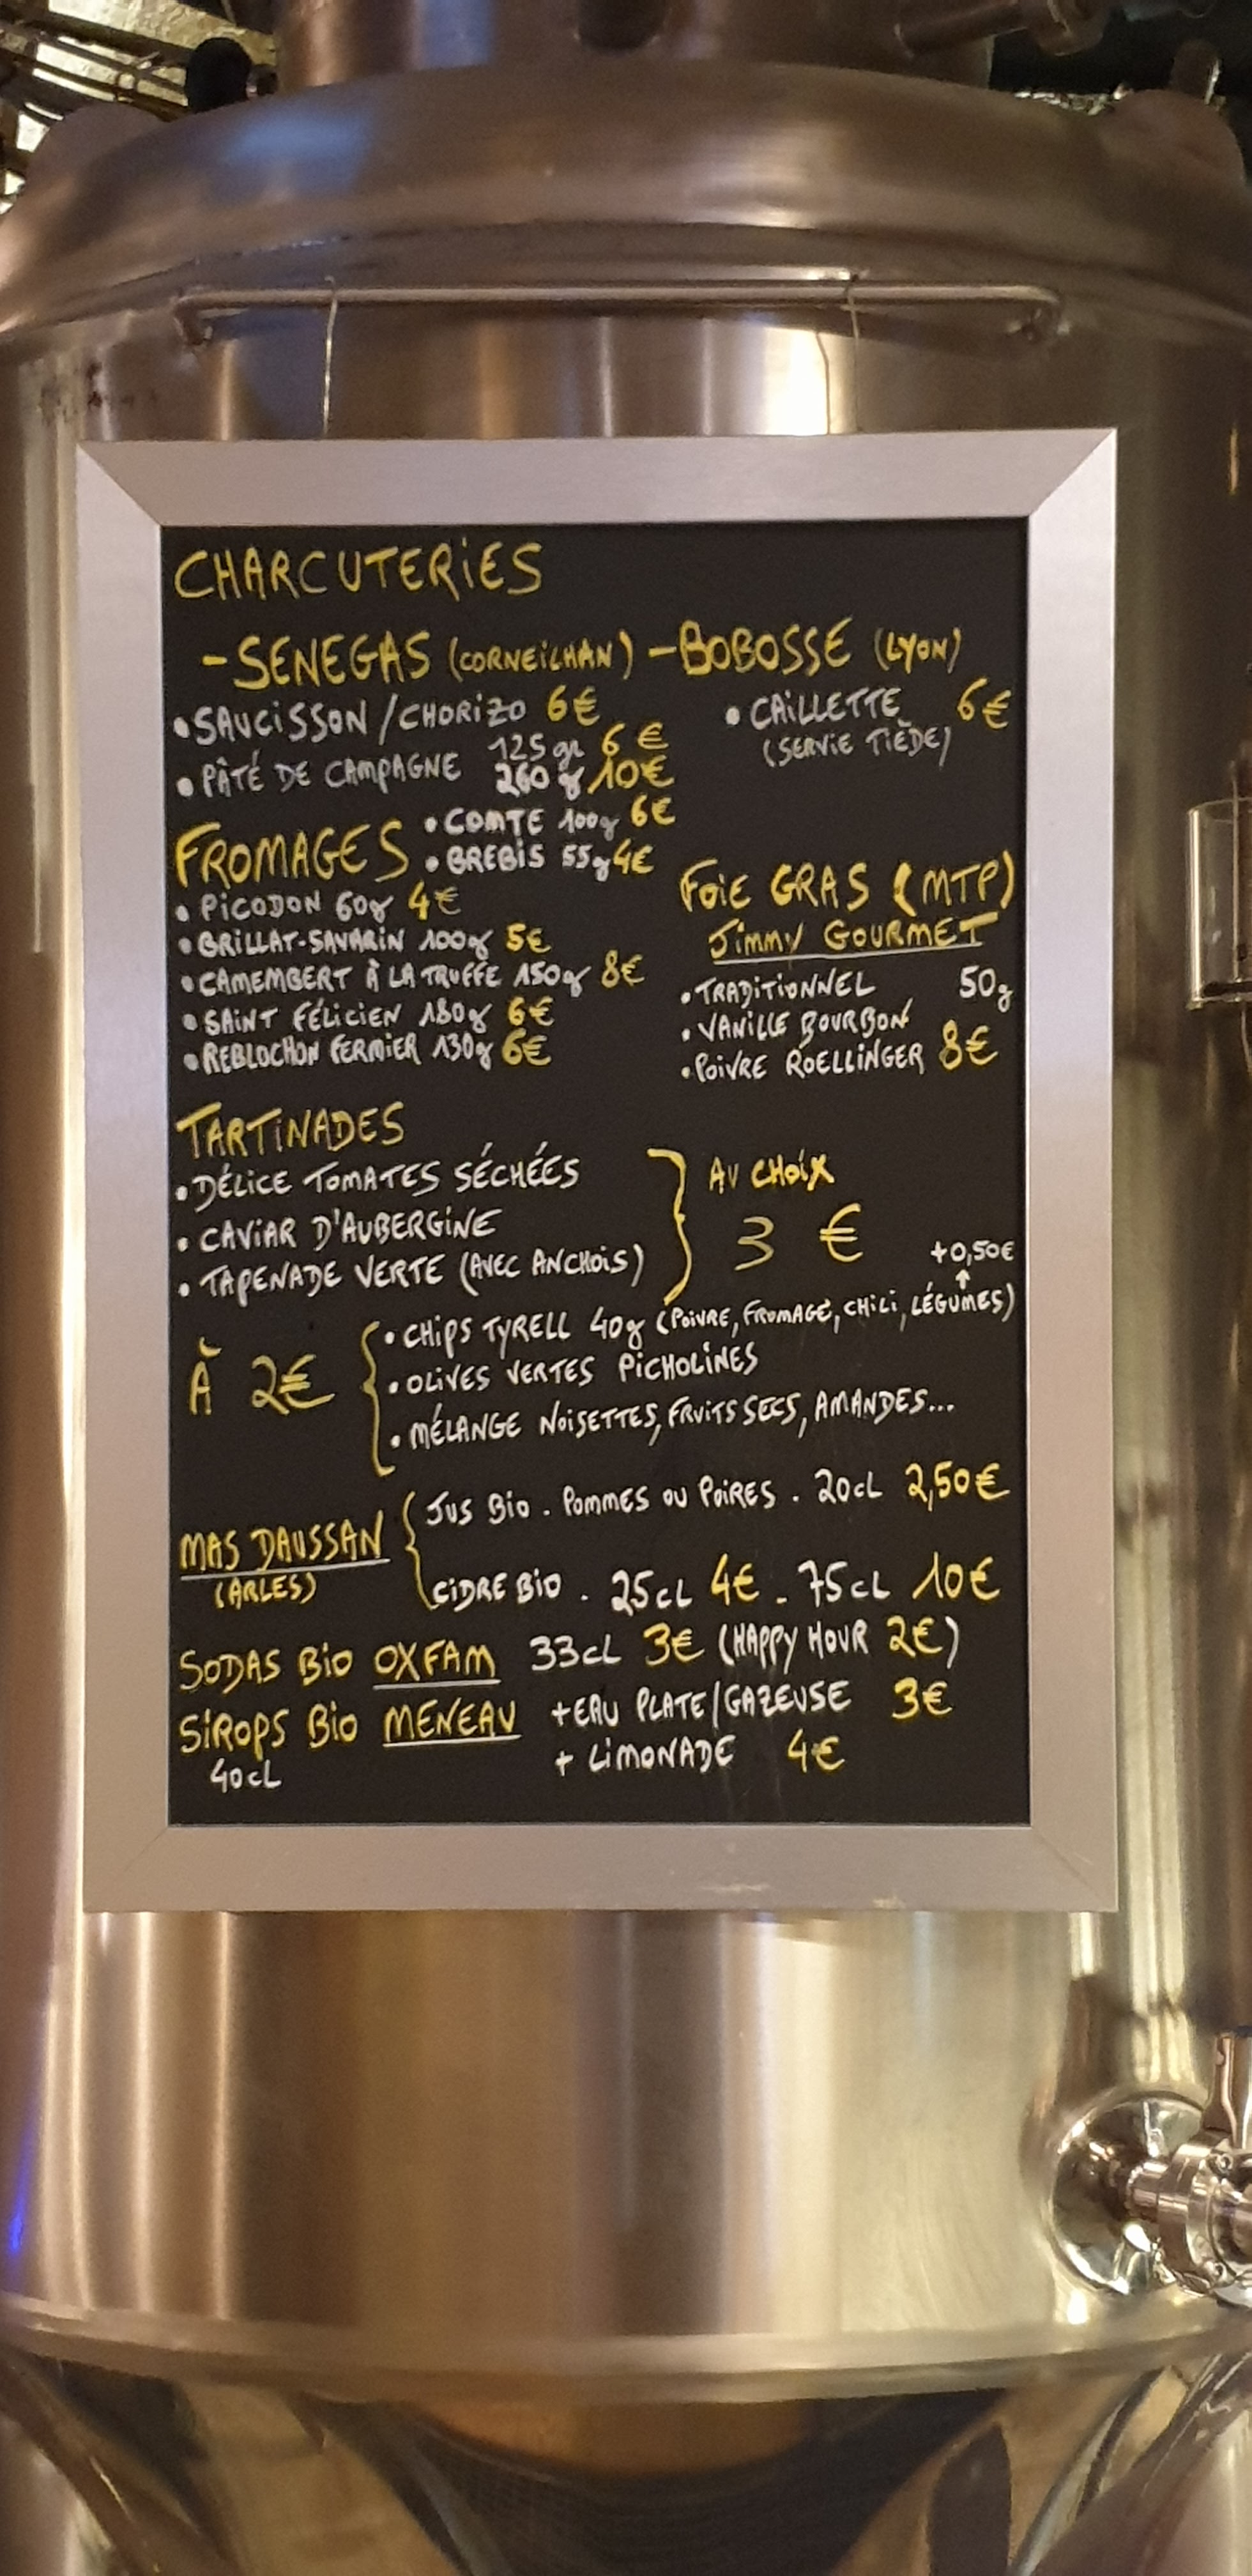 CHARCUTERIES
- SENEGAS (CORNEILHAN) - BOBOSSE (LYON)
• SAUCISSON / CHORIZO 6€
• CAILLETTE 6€
(SERVIE TIÈDE)
125 gr 6 €
• PÂTÉ DE CAMPAGNE 260 g 10€
FROMAGES • COMTE 100g 6€
• BREBIS 55g 4€
• PICODON 60g 4€
• BRILLAT-SAVARIN 100g 5€
• CAMEMBERT À LA TRUFFE 150g 8€
• SAINT FÉLICIEN 180g 6€
• REBLOCHON FERMIER 130g 6€
FOIE GRAS (MTP)
JIMMY GOURMET
• TRADITIONNEL 50g
• VANILLE BOURBON
• POIVRE ROELLINGER 8€
TARTINADES
• DÉLICE TOMATES SÉCHÉES
• CAVIAR D'AUBERGINE
• TAPENADE VERTE (AVEC ANCHOIS)
AU CHOIX
3 €
+0,50€
À 2€
• CHIPS TYRELL 40g (POIVRE, FROMAGE, CHILI, LÉGUMES)
• OLIVES VERTES PICHOLINES
• MÉLANGE NOISETTES, FRUITS SECS, AMANDES...
MAS DAUSSAN
(ARLES)
JUS BIO . POMMES OU POIRES . 20cL 2,50€
CIDRE BIO . 25cL 4€ - 75cL 10€
SODAS BIO OXFAM 33cL 3€ (HAPPY HOUR 2€)
SIROPS BIO MENEAU + EAU PLATE/GAZEUSE 3€
40cL + LIMONADE 4€